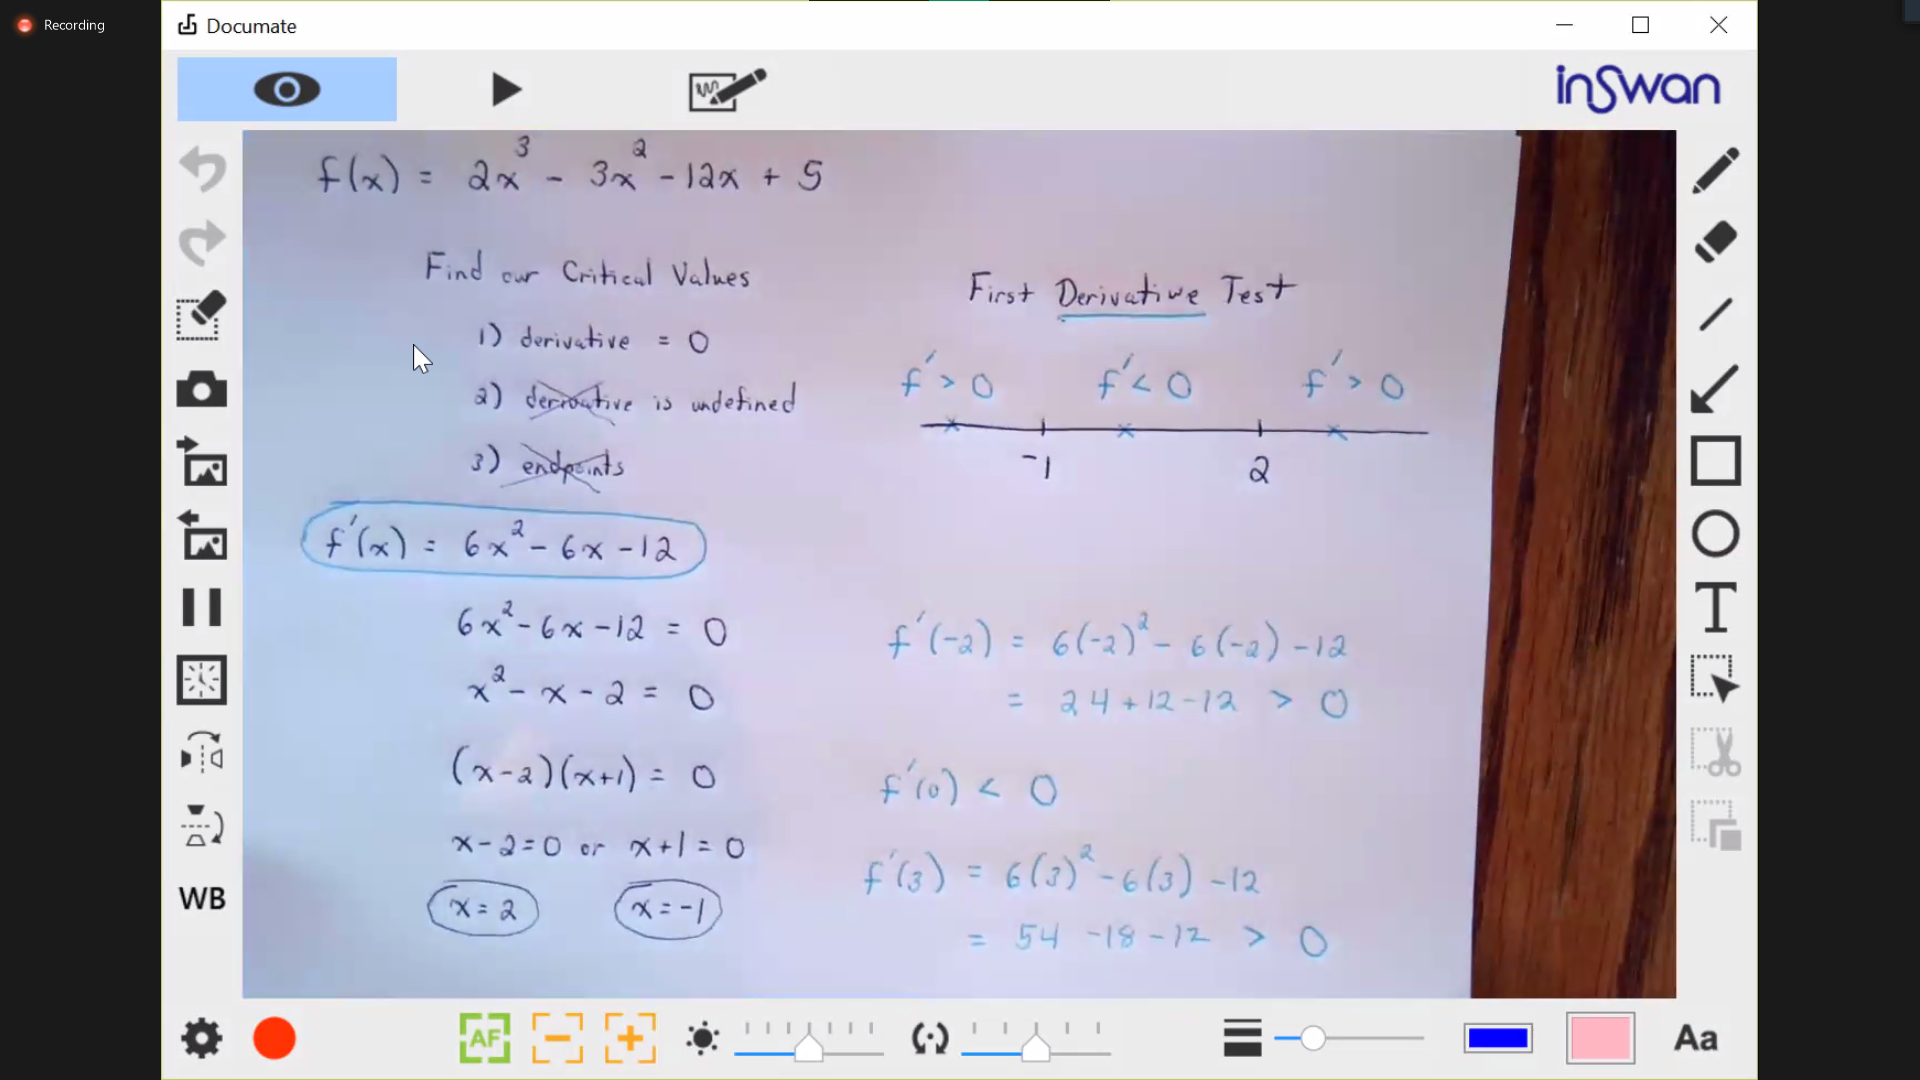 Recording
Documate
inSwan
f(x) = 2x³ - 3x² - 12x + 5
Find our Critical Values
1) derivative = 0
2) derivative is undefined
3) endpoints
f'(x) = 6x² - 6x - 12
6x² - 6x - 12 = 0
x² - x - 2 = 0
(x-2)(x+1) = 0
x-2=0 or x+1=0
x=2 x=-1
First Derivative Test
f'>0 f'<0 f'>0
-1 2
f'(-2) = 6(-2)² - 6(-2) - 12
= 24+12-12 > 0
f'(0) < 0
f'(3) = 6(3)² - 6(3) - 12
= 54 -18 -12 > 0
WB
T
AF
Aa